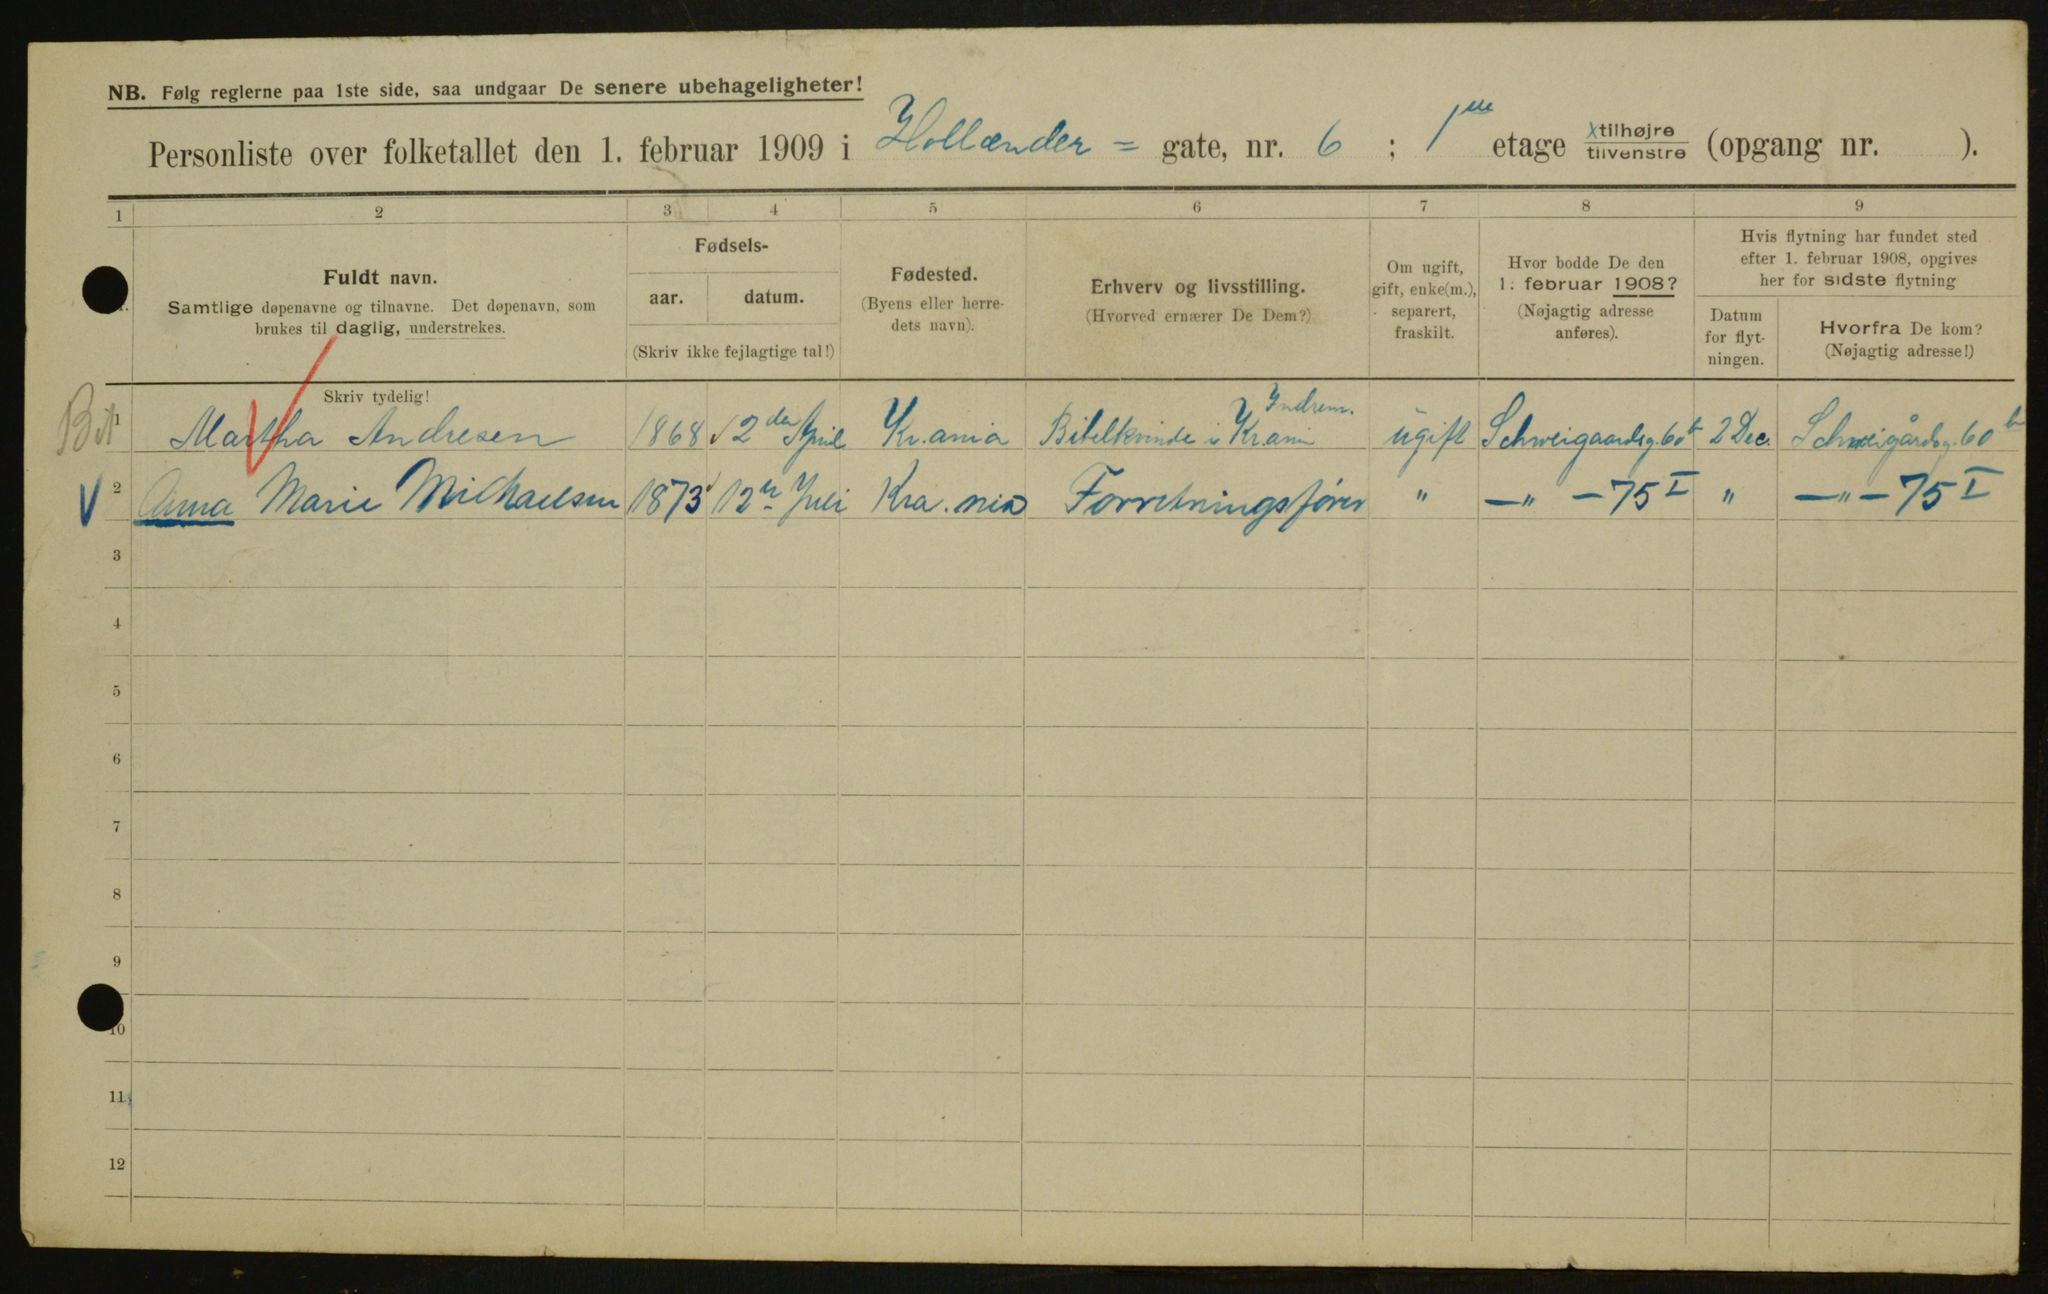 NB. Følg reglerne paa 1ste side, saa undgaar De senere ubehageligheter!
Personliste over folketallet den 1. februar 1909 i Hollænder= gate, nr. 6 ; 1ste etage xtilhøjre/tilvenstre (opgang nr. ).
1 2 3 4 5 6 7 8 9
Fuldt navn.
Samtlige døpenavne og tilnavne. Det døpenavn, som
brukes til daglig, understrekes.
Skriv tydelig!
Fødsels-
aar. datum.
(Skriv ikke fejlagtige tal!)
Fødested.
(Byens eller herre-
dets navn).
Erhverv og livsstilling.
(Hvorved ernærer De Dem?)
Om ugift,
gift, enke(m.),
separert,
fraskilt.
Hvor bodde De den
1. februar 1908?
(Nøjagtig adresse
anføres).
Hvis flytning har fundet sted
efter 1. februar 1908, opgives
her for sidste flytning
Datum
for flyt-
ningen.
Hvorfra De kom?
(Nøjagtig adresse!)
1 Martha Andresen 1868 12den April Kr.ania Bibelkvinde i Indrem. Kr.ania ugift Schweigaardsg. 60b 2 Dec. Schweigårdsg. 60b
2 Anna Marie Michaelsen 1873 12te Juli Kra.nia Forretningsfører " —"— 75 I " —"— 75 I
3
4
5
6
7
8
9
10
11
12